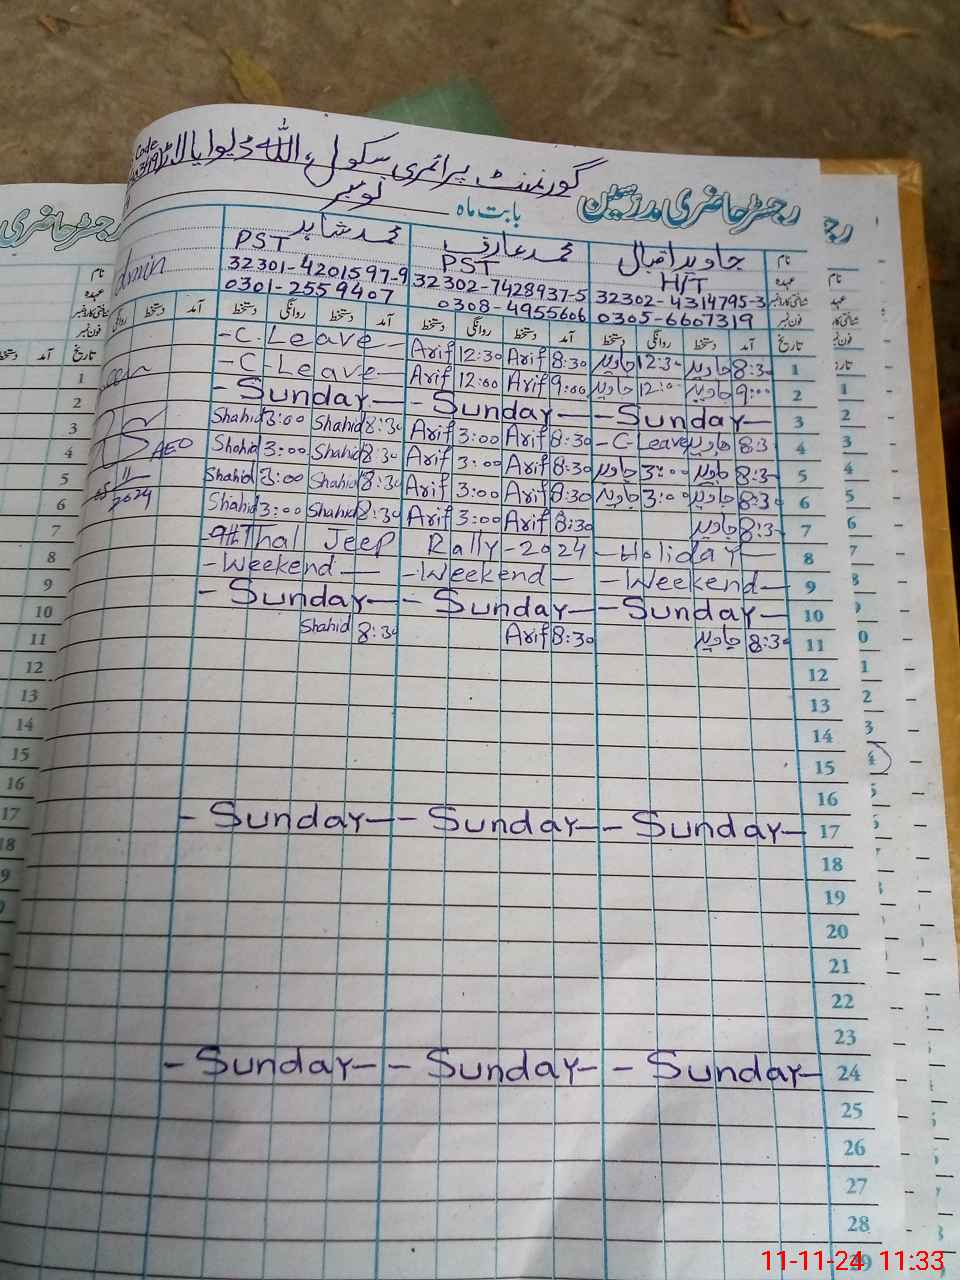 گورنمنٹ پرائمری سکول اللہ ڈیوایا لاڑ
Code
رجسٹر حاضری مدرسین بابت ماہ نومبر
نام جاوید اقبال محمد عارف محمد شاہد
عہدہ H/T PST PST
شناختی کارڈ نمبر 32302-4314795-3 32302-7428937-5 32301-4201597-9
فون نمبر 0305-6607319 0308-4955606 0301-2559407
admin
تاریخ آمد دستخط روانگی دستخط آمد دستخط روانگی دستخط آمد دستخط روانگی دستخط آمد دستخط روانگی
1 8:30 جاوید 12:30 جاوید 8:30 Arif 12:30 Arif -C.Leave-
2 9:00 جاوید 12:00 جاوید 9:00 Arif 12:00 Arif -C Leave-
3 -Sunday- -Sunday- -Sunday-
4 8:30 جاوید -C Leave 8:30 Arif 3:00 Arif 8:30 Shahid 3:00 Shahid
5 8:30 جاوید 3:00 جاوید 8:30 Arif 3:00 Arif 8:30 Shahid 3:00 Shahid
6 8:30 جاوید 3:00 جاوید 8:30 Arif 3:00 Arif 8:30 Shahid 3:00 Shahid
7 8:30 جاوید 8:30 Arif 3:00 Arif 8:30 Shahid 3:00 Shahid
AEO
11
2024
8 -9th Thal Jeep Rally-2024 -Holiday-
9 -Weekend- -Weekend- -Weekend-
10 -Sunday- -Sunday- -Sunday-
11 8:30 جاوید 8:30 Arif 8:30 Shahid
12
13
14
15
16
17 -Sunday- -Sunday- -Sunday-
18
19
20
21
22
23
24 -Sunday- -Sunday- -Sunday-
25
26
27
28
29
11-11-24 11:33